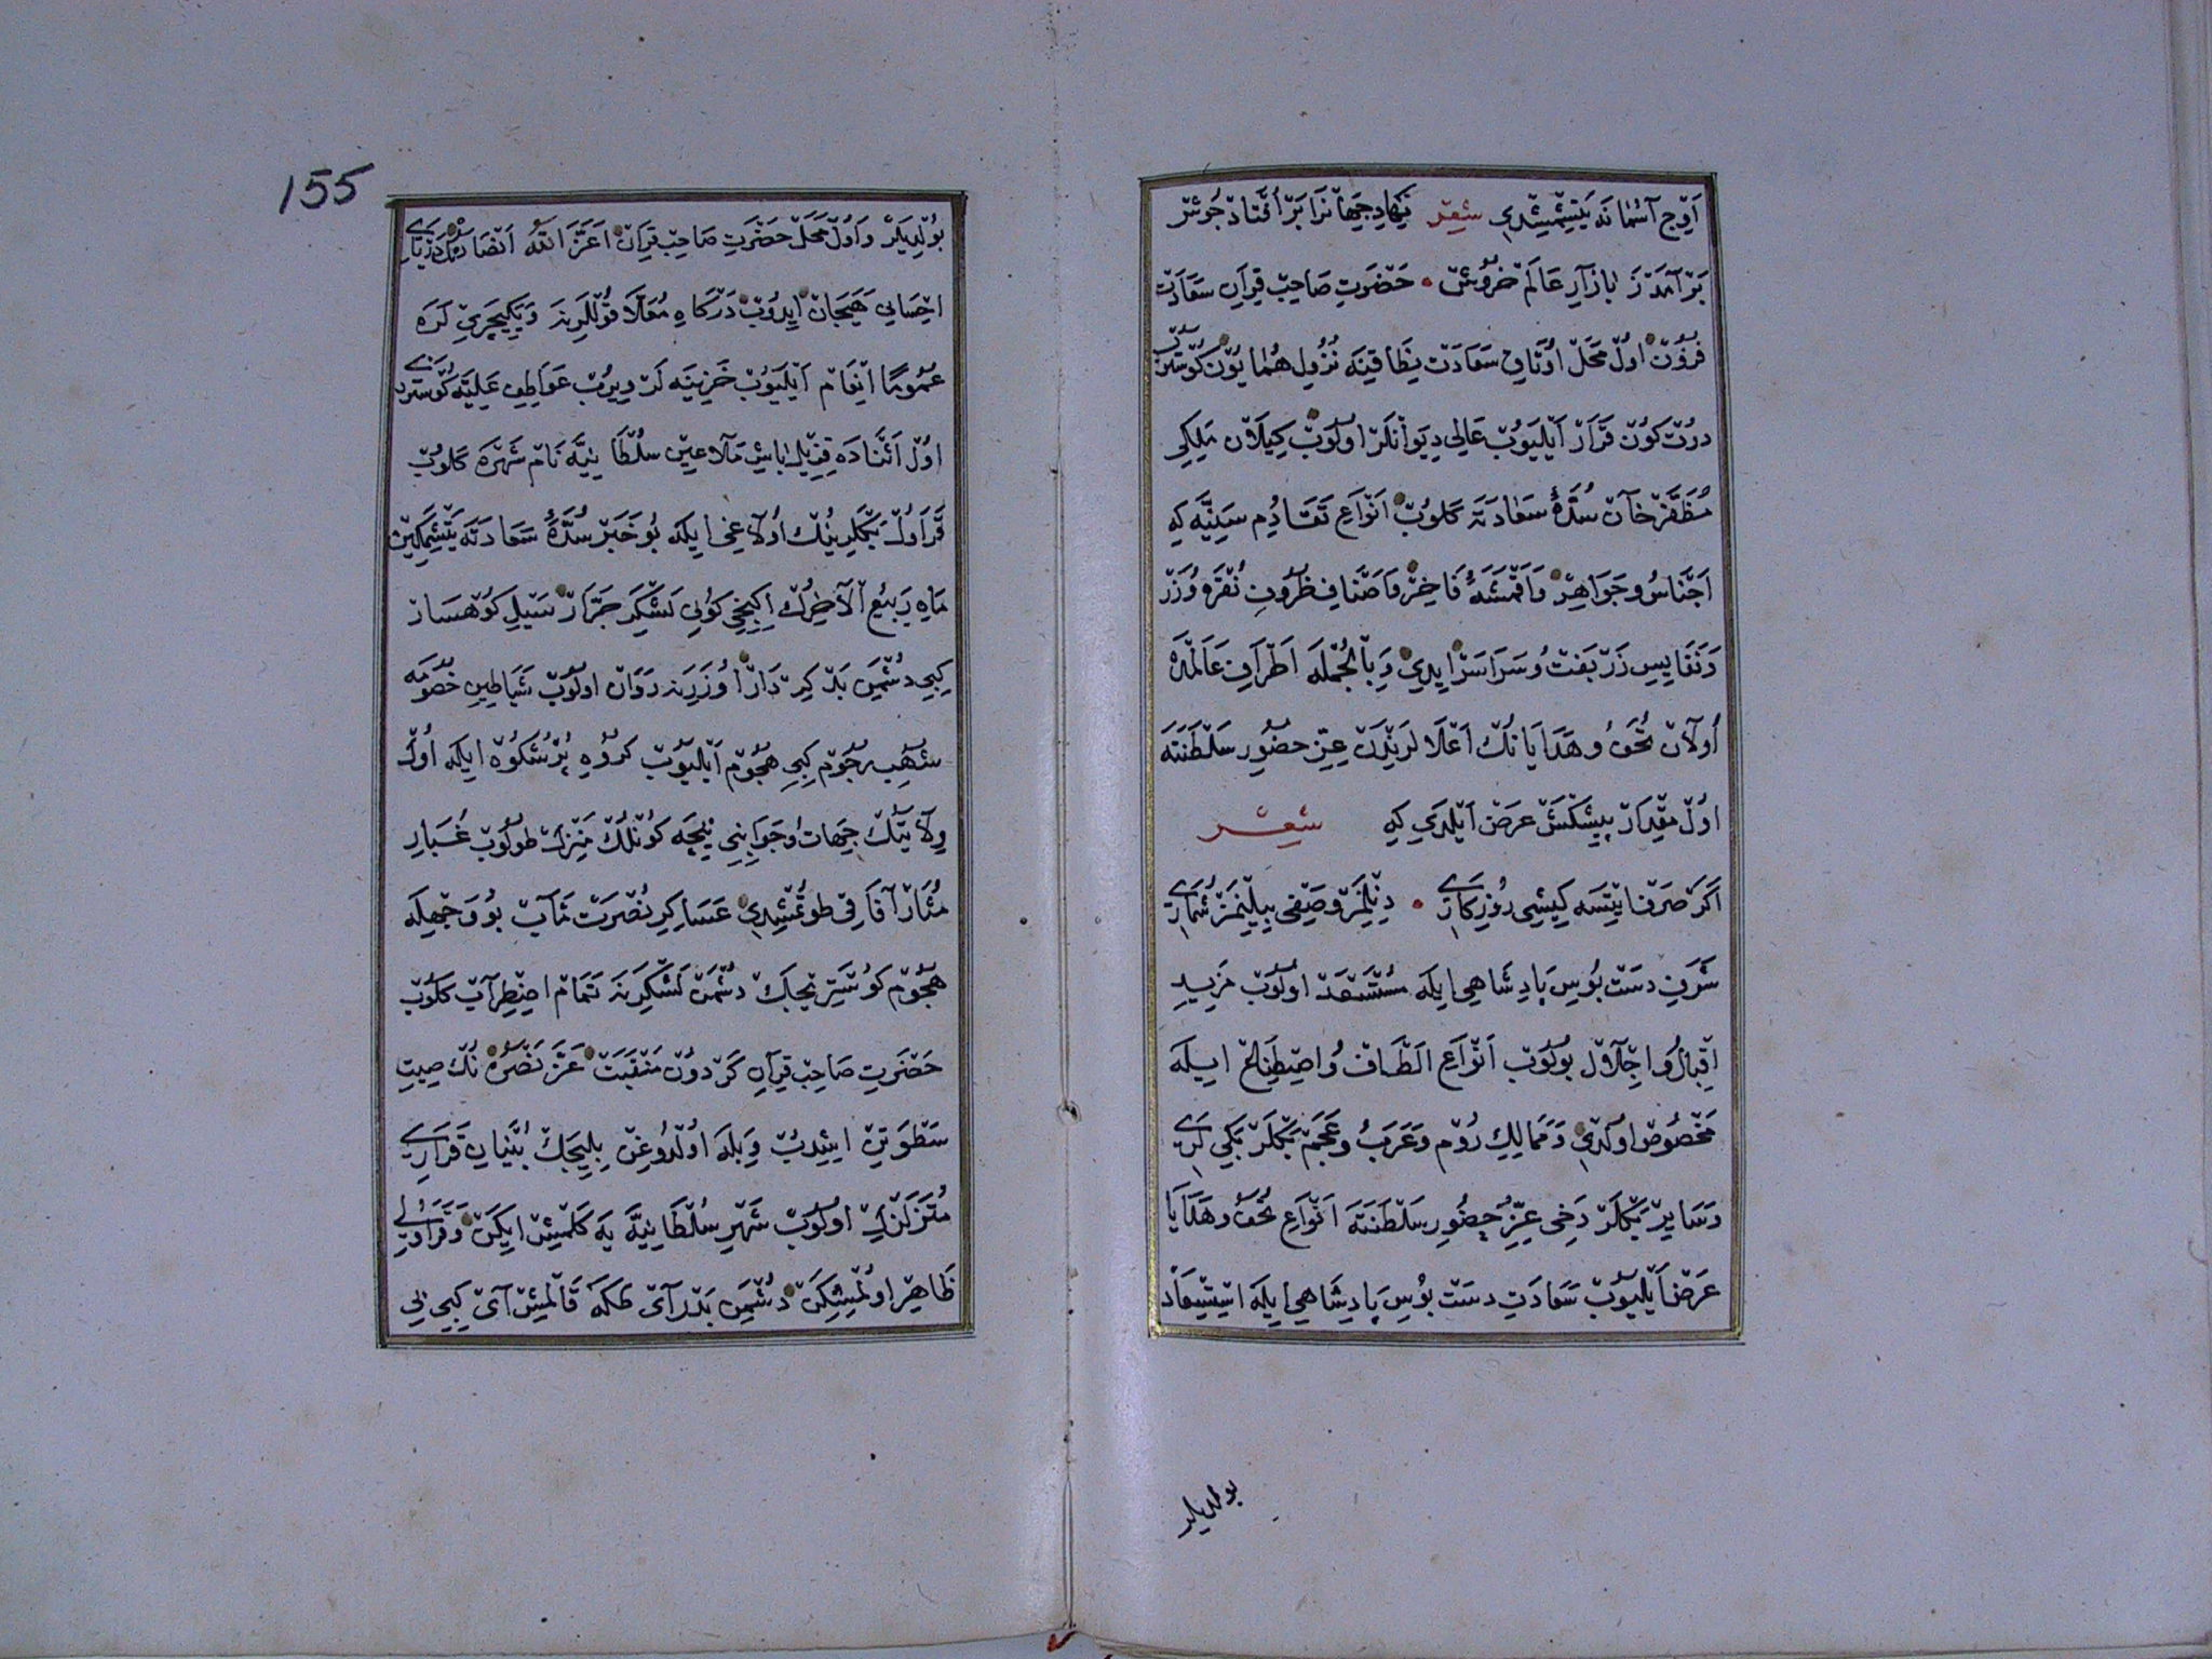 اوج آسمانه يتشمشدي شعر نهاد جهانرا بر افتاد جوش
بر آمد ز بازار عالم خروش حضرت صاحب قران سعادت
فزون اول محل اوتاق سعادت نطاقينه نزول همايون كوستروب
درت كون قرار ايليوب عالي ديوانلر اولوب كيلان ملكي
مظفر خان سده سعادته كلوب انواع تقادم سنيه كه
اجناس و جواهر و اقمشه فاخر و اصناف ظروف نقره و زر
و نفايس زربفت و سراسر ايدي و بالجمله اطراف عالمده
اولان تحف و هدايا نك اعلا لرندن عز حضور سلطنته
اول مقدار پيشكش عرض ايلدي كه شعر
اكر صرف ايتسه كيشي روزكاري دنلمز وصفي بيلنمز شماري
شرف دست بوس پادشاهي ايله مستسعد اولوب مزيد
اقبال و اجلال بولوب انواع الطاف و اصطناع ايله
مخصوص اولدي و ممالك روم و عرب و عجم بكلر بكي لري
و ساير بكلر دخي عز حضور سلطنته انواع تحف و هدايا
عرض ايليوب سعادت دست بوس پادشاهي ايله استسعاد
بولديلر
155
بولديلر و اول محل حضرت صاحب قران اعز الله انصاره نك درياي
احساني هيجان ايدوب دركاه معلا قوللرينه و يكيچري لره
عموما انعام ايليوب خزينه لر ويروب عواطف عليه كوستردي
اول اثناده قزيل باش ملاعين سلطانيه نام شهره كلوب
قراول بكلرينك اولاغي ايله بو خبر سده سعادته يتشمكين
ماه ربيع الآخرك ايكنجي كوني لشكر جرار سيل كوهسار
كبي دشمن بد كردار اوزرينه روان اولوب شياطين خصومه
شهب رجوم كبي هجوم ايليوب كروه پر شكوه ايله اول
ولايتك جهات و جوانبي نيچه كونلك منزل طولوب غبار
مثار آفاقي طوتمشدي عساكر نصرت مآب بو وجهله
هجوم كوستريجك دشمن لشكرينه تمام اضطراب كلوب
حضرت صاحب قران كردون منقبت عز نصره نك صيت
سطوتن ايشدب و بله اولدوغن بليجك بنيان قراري
متزلزل اولوب شهر سلطانيه يه كلمش ايكن و قراولي
ظاهر اولمشكن دشمن بد راي طكه قالمش آي كبي بي